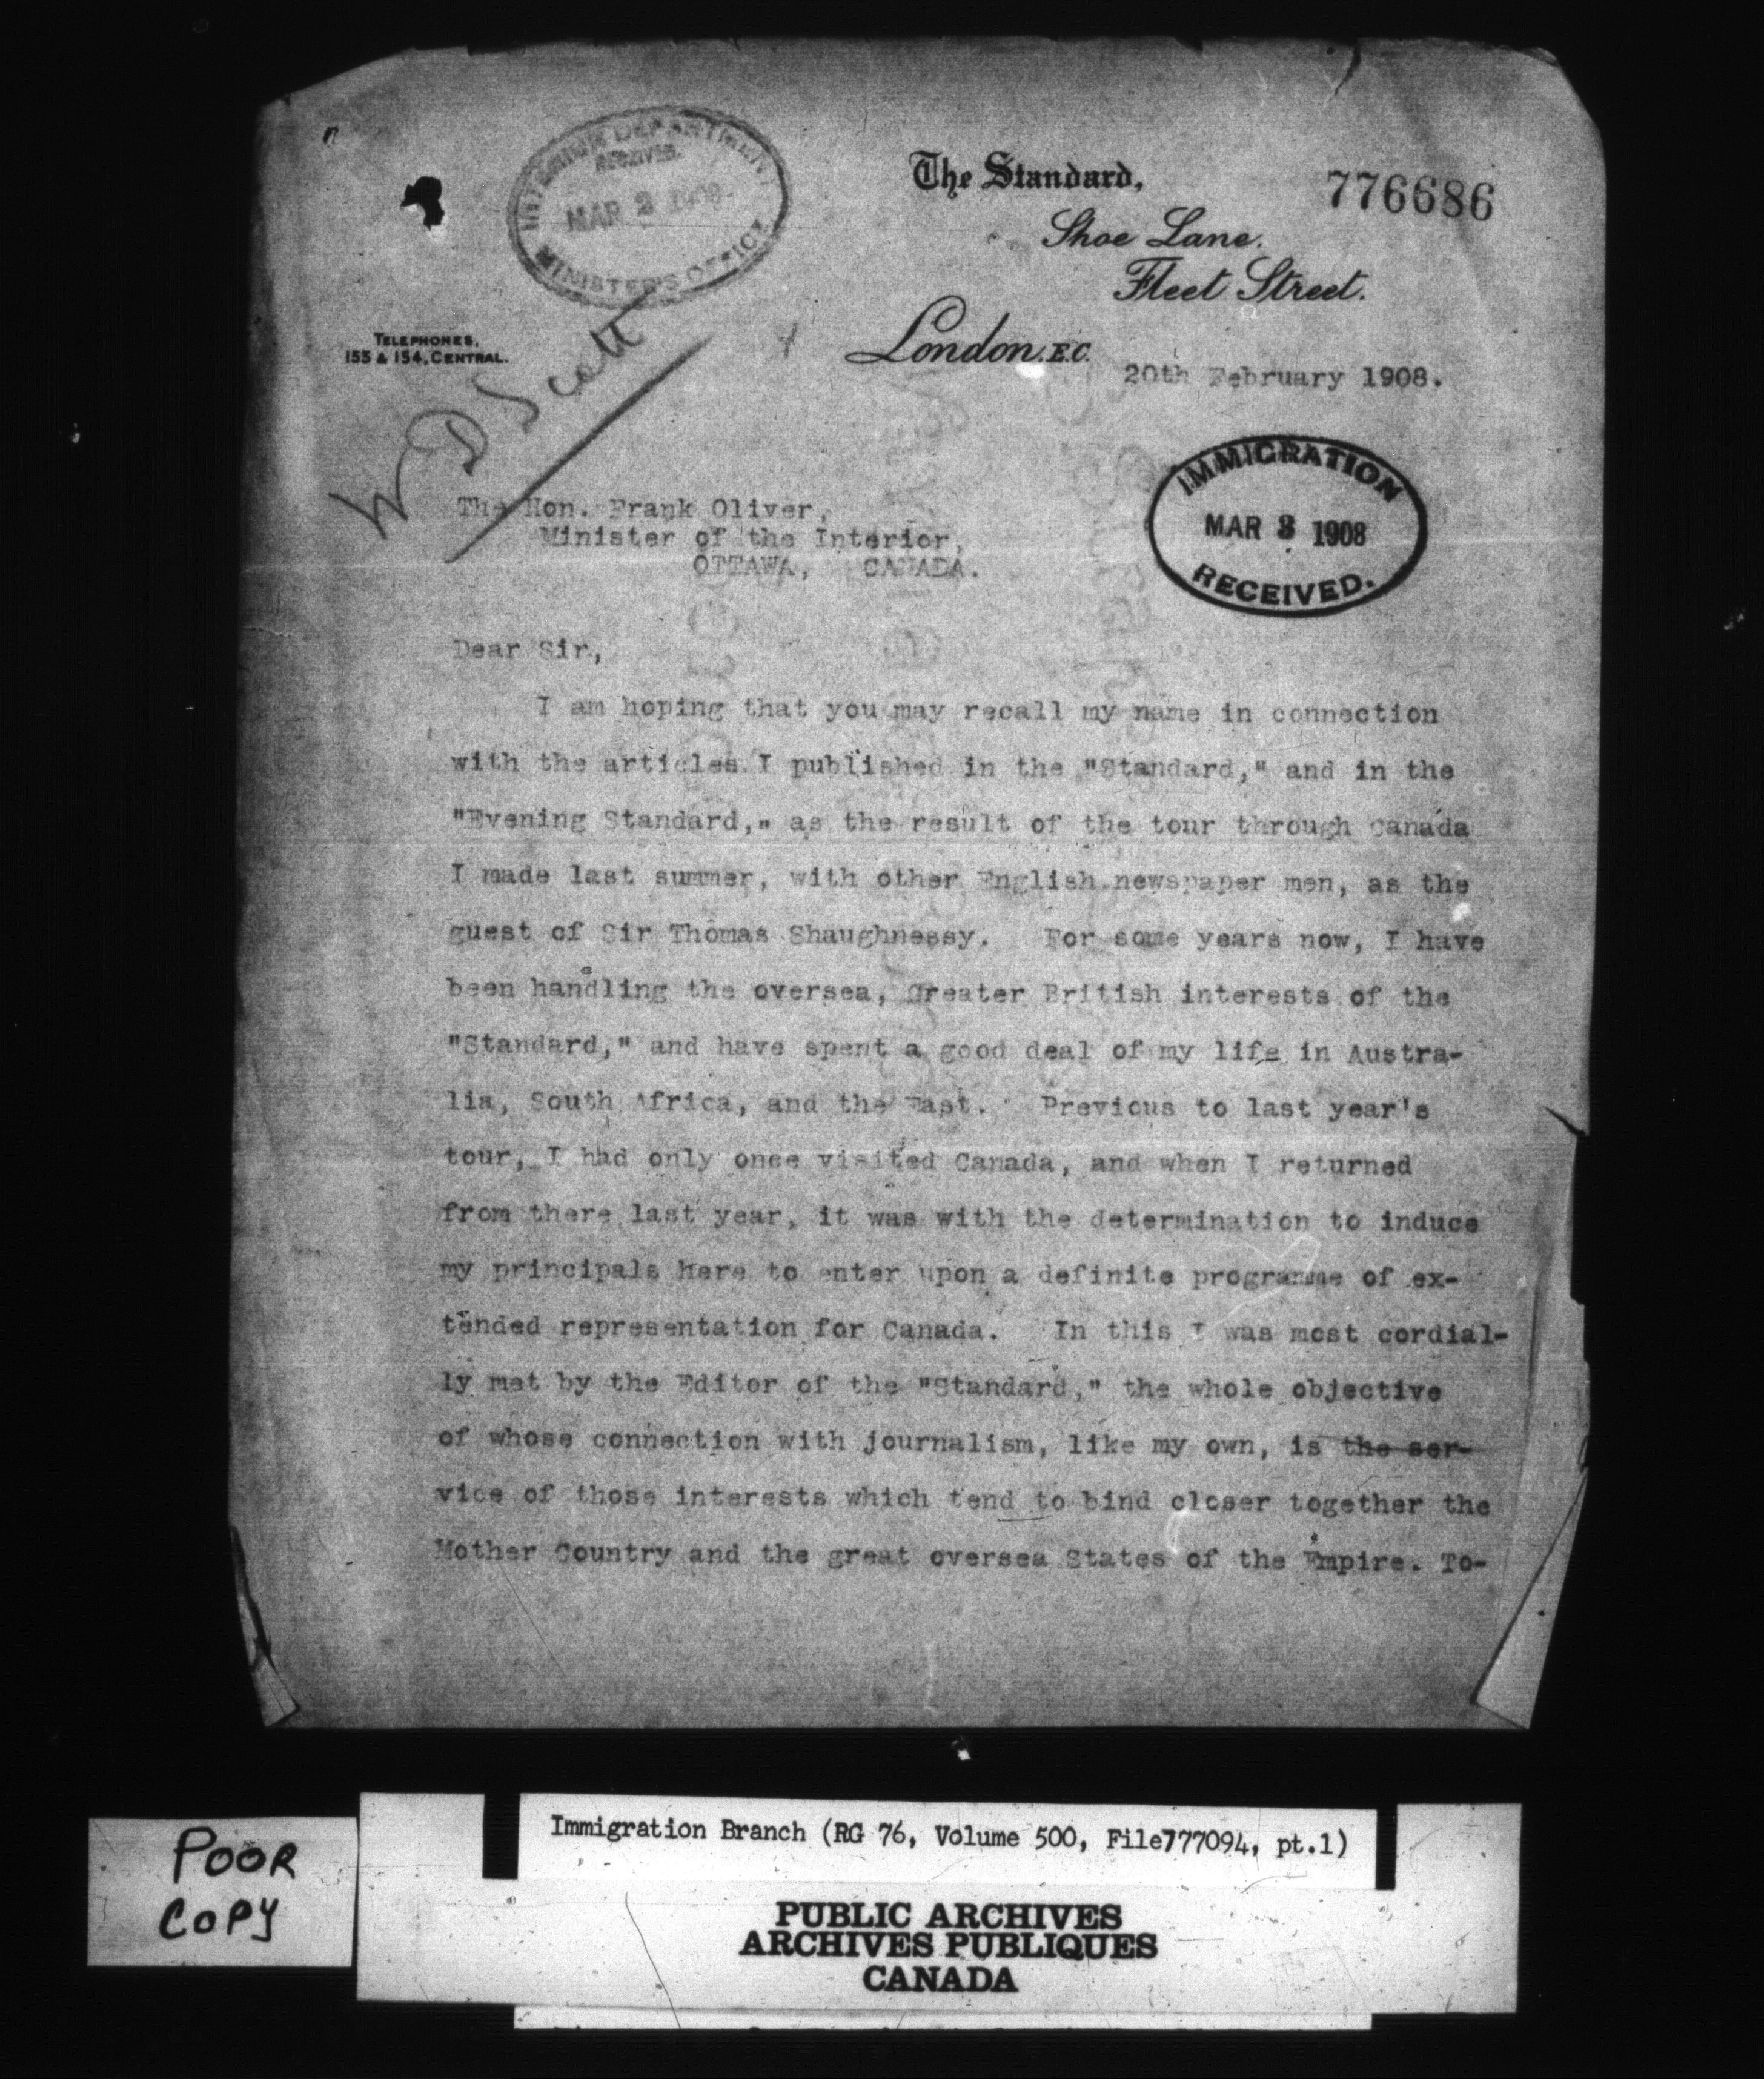 INTERIOR DEPARTMENT
RECEIVED.
MAR 2 1908
MINISTER'S OFFICE
The Standard,
776686
Shoe Lane.
Fleet Street.
TELEPHONES,
153 & 154, CENTRAL.
London. E.C.
20th February 1908.
W D Scott
IMMIGRATION
MAR 3 1908
RECEIVED.
The Hon. Frank Oliver,
Minister of the Interior,
OTTAWA, CANADA.
Dear Sir,
I am hoping that you may recall my name in connection
with the articles I published in the "Standard," and in the
"Evening Standard," as the result of the tour through Canada
I made last summer, with other English newspaper men, as the
guest of Sir Thomas Shaughnessy. For some years now, I have
been handling the oversea, Greater British interests of the
"Standard," and have spent a good deal of my life in Austra-
lia, South Africa, and the East. Previous to last year's
tour, I had only once visited Canada, and when I returned
from there last year, it was with the determination to induce
my principals here to enter upon a definite programme of ex-
tended representation for Canada. In this I was most cordial-
ly met by the Editor of the "Standard," the whole objective
of whose connection with journalism, like my own, is the ser-
vice of those interests which tend to bind closer together the
Mother Country and the great oversea States of the Empire. To-
POOR
COPY
Immigration Branch (RG 76, Volume 500, File777094, pt.1)
PUBLIC ARCHIVES
ARCHIVES PUBLIQUES
CANADA